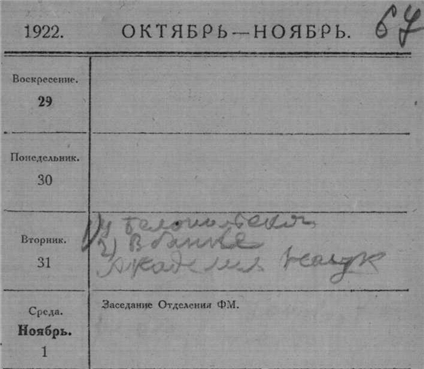 1922. ОКТЯБРЬ—НОЯБРЬ. 67
Воскресение.
29
Понедельник.
30
Вторник.
31
1)
2) В банке
Академия Наук
Среда.
Ноябрь.
1
Заседание Отделения ФМ.